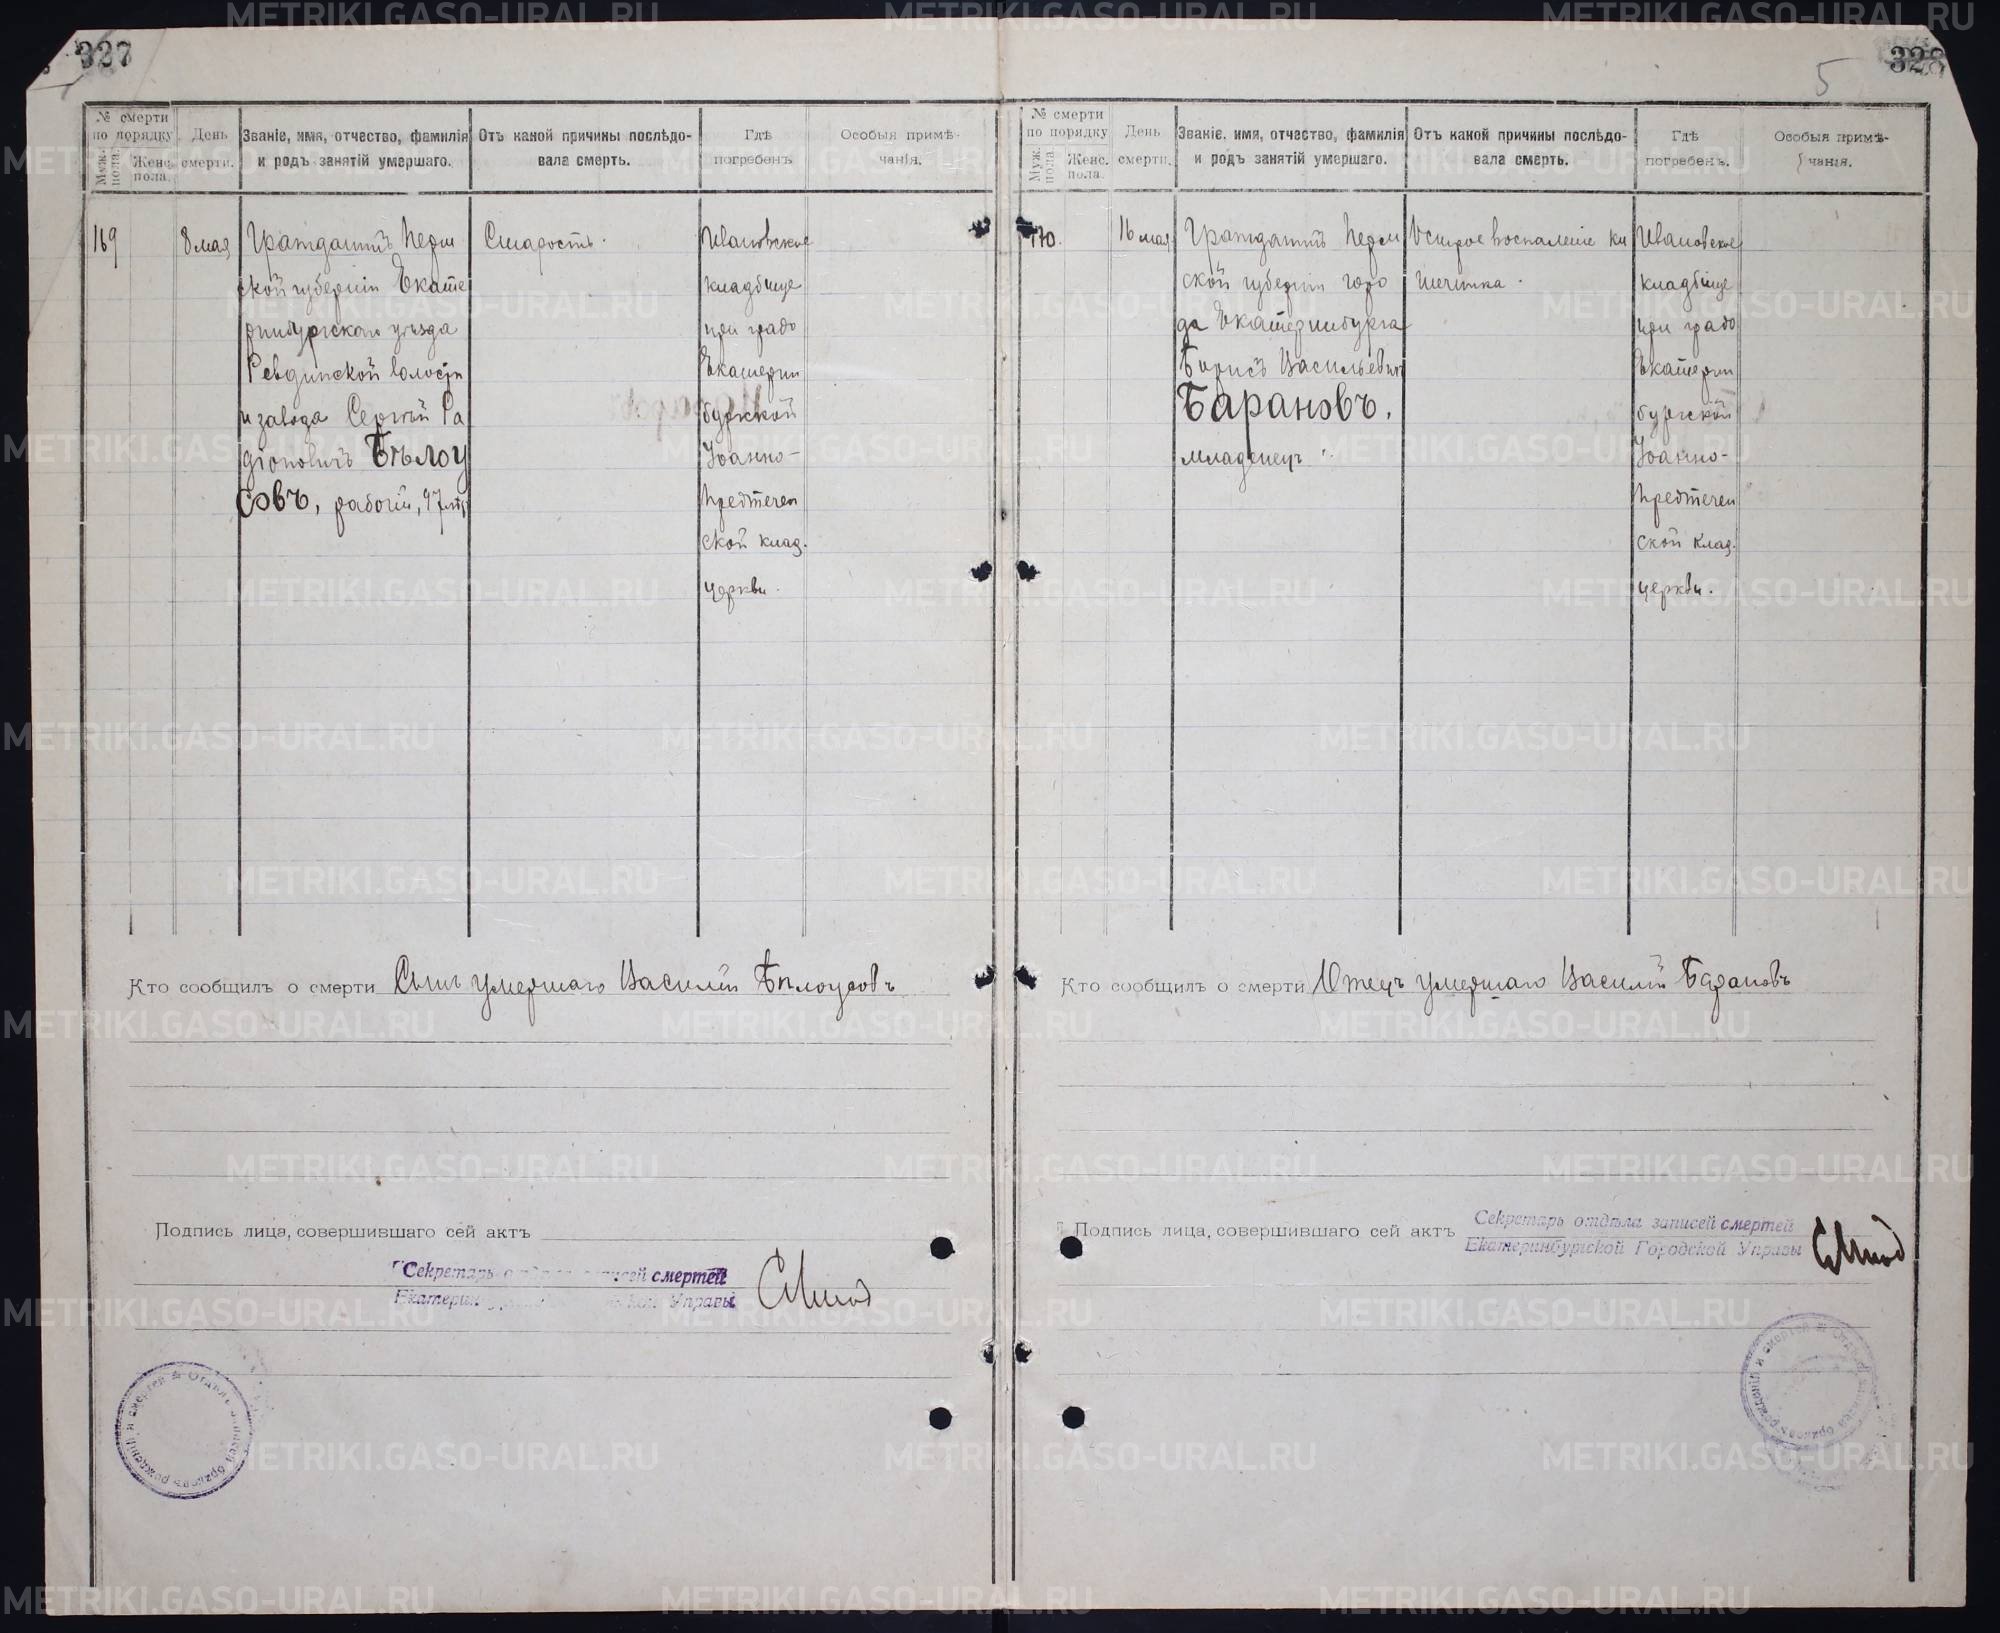 327
№ смерти
по порядку
Муж. пола.
Женс. пола.
День
смерти.
Званіе, имя, отчество, фамилія
и родъ занятій умершаго.
Отъ каной причины послѣдо-
вала смерть.
Гдѣ
погребенъ
Особыя примѣ-
чанія.
169
8 мая
Гражданинъ Перм
ской губерніи Екате
ринбургскаго уѣзда
Ревдинской волости
и завода Сергѣй Ра
діоновичъ Бѣлоу
совъ, рабочій, 97 лѣт
Старость.
Ивановское
кладбище
при градо
Екатерин
бургской
Іоанно-
Предтечен
ской клад.
церкви.
Кто сообщилъ о смерти Сынъ умершаго Василій Бѣлоусовъ
Подпись лица, совершившаго сей актъ
Секретарь отдѣла записей смертей
Екатеринбургской Городской Управы
Отдѣлъ записей браковъ рожденій и смертей
328
5
№ смерти
по порядку
Муж. пола.
Женс. пола.
День
смерти.
Званіе, имя, отчество, фамилія
и родъ занятій умершаго.
Отъ каной причины послѣдо-
вала смерть.
Гдѣ
погребенъ.
Особыя примѣ-
чанія.
170.
16 мая
Гражданинъ Перм
ской губерніи горо
да Екатеринбурга
Борисъ Васильевичъ
Барановъ.
младенецъ.
Острое воспаленіе ки
шечника.
Ивановское
кладбище
при градо
Екатерин
бургской
Іоанно-
Предтечен
ской клад.
церкви.
Кто сообщилъ о смерти Отецъ умершаго Василій Барановъ
Подпись лица, совершившаго сей актъ
Секретарь отдѣла записей смертей
Екатеринбургской Городской Управы
Отдѣлъ записей браковъ рожденій и смертей
METRIKI.GASO-URAL.RU